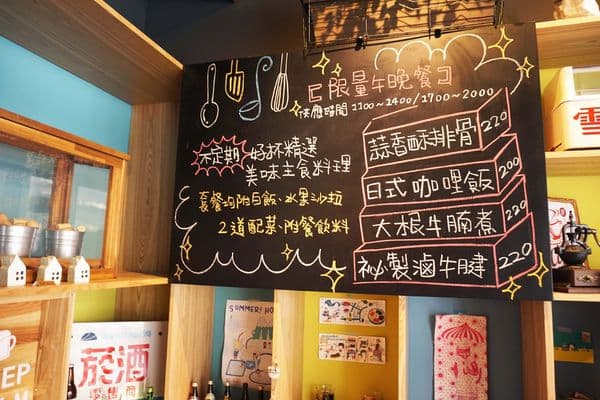 〖限量午晚餐〗
供應時間 1100~1400/1700~2000
不定期
好杯精選
美味主食料理
套餐均附白飯、水果沙拉
2道配菜、附餐飲料
蒜香酥排骨 220
日式咖哩飯 200
大根牛腩煮 220
祕製滷牛腱 220
雪
菸酒
零售商
SUMMER!